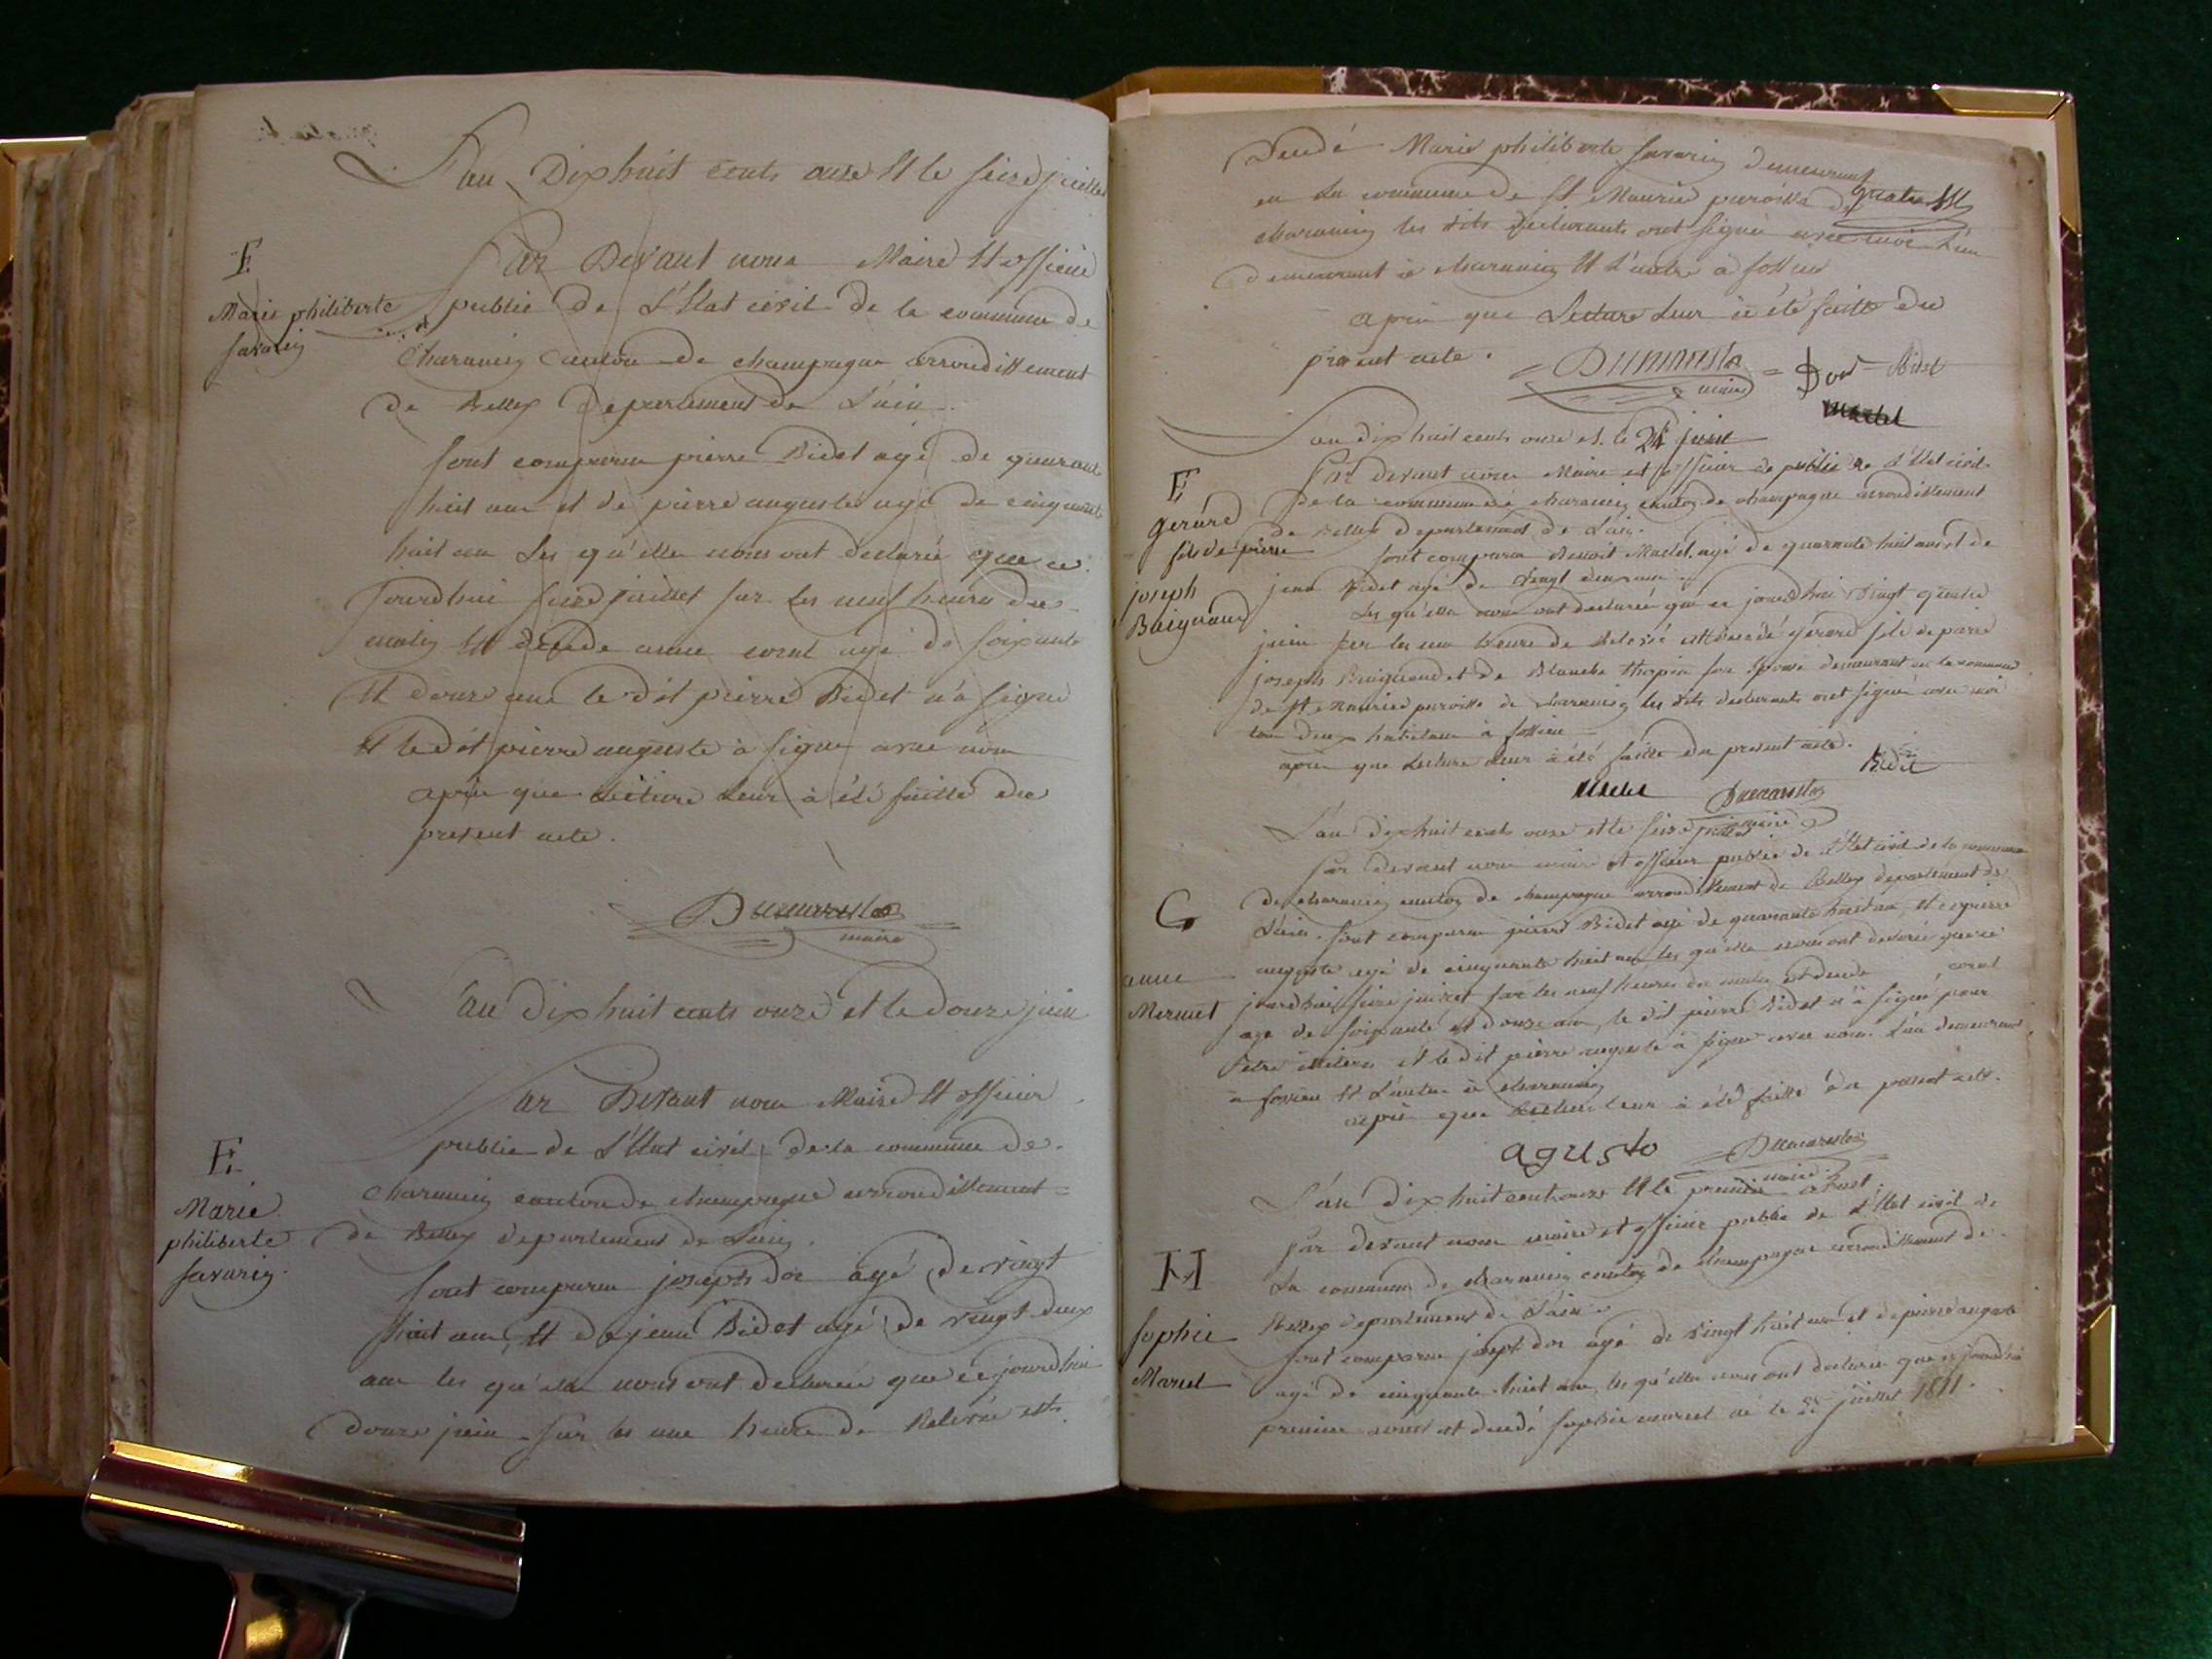 L'an Dix huit cents onze Et le seize juillet
Par Devant nous Maire Et officier
E
Marie philiberte
savarin
public de L'Etat civil de la commune de
Charancin Canton de champagne arrondissement
de Belley Departement de L'ain.
sont comparu pierre Bidet agé de quarante
huit ans et de pierre auguste agé de cinquante
huit ans Les qu'elle nous ont declarée que ce
jourdhui seize juillet sur les neuf heures du
matin Et décédé anne coral agé de soixante
Et douze ans le dit pierre Bidet n'a signé
Et le dit pierre auguste à signé avec nous
après que Lecture Leur à été faitte du
present acte.
Dumarest
maire
L'an dix huit cents onze et le douze juin
Par Devant nous Maire Et officier
public de L'Etat civil de la commune de
E
Marie
philiberte
savarin.
charancin canton de champagne arrondissement
de Belley departement de L'ain.
sont comparu joseph dor agé de vingt
huit ans, Et de jean Bidet agé de vingt deux
ans les qu'elle nous ont declarée que ce jourdhui
douze juin sur les une heure de Relevée est
Decedé Marie philiberte savarin demeurant
en la commune de St Maurice paroisse de
charancin les dits declarants ont signé avec moi L'un
demeurant à charancin Et L'autre à
après que Lecture Leur à été faitte du
present acte.
Dumarest
maire
Dor Bidet
martel
L'an dix huit cents onze et le 24 juin
E
gerard
fils de pierre
joseph
Buignand
Par devant nous Maire et officier de public de L'Etat civil
de la commune de charancin canton de champagne arrondissement
de Belley departement de L'ain.
sont comparu Benoit Martel agé de quarante huit ans et de
jean Bidet agé de vingt deux ans.
Les qu'elle nous ont declarée que ce jourdhui vingt quatre
juin sur les une heure de Relevé est décédé gérard fils de pierre
joseph Buignand et de Blanche son Epouse demeurant en la commune
de St Maurice paroisse de charancin les dits declarants ont signé avec moi
tous deux habitans à
après que Lecture Leur à été faitte du present acte.
Bidet
Dumarest
maire
L'an dix huit cents onze et le seize juillet
par devant nous maire et officier public de L'Etat civil de la commune
G
anne
Mermet
de charancin canton de champagne arrondissement de Belley departement de
L'ain. sont comparu pierre Bidet agé de quarante huit ans, Et de pierre
auguste agé de cinquante huit ans les qu'elle nous ont declarée que ce
jourdhui seize juillet sur les neuf heures du matin est decedé coral
agé de soixante et douze ans, le dit pierre Bidet n'à signé pour
et le dit pierre auguste à signé avec nous. L'un demeurant
à Et L'autre à charancin
après que Lecture Leur à été faitte du present acte.
agusto
Dumarest
maire
L'an dix huit cent onze Et le premier aoust
par devant nous maire et officier public de L'Etat civil de
H
sophie
Marcel
La commune de charancin canton de champagne arrondissement de
Belley departement de L'ain.
sont comparu joseph dor agé de vingt huit ans et de pierre auguste
agé de cinquante huit ans, les qu'elle nous ont declarée que ce jourdhui
premier aoust est decedé sophie marcel né le juillet 1811.